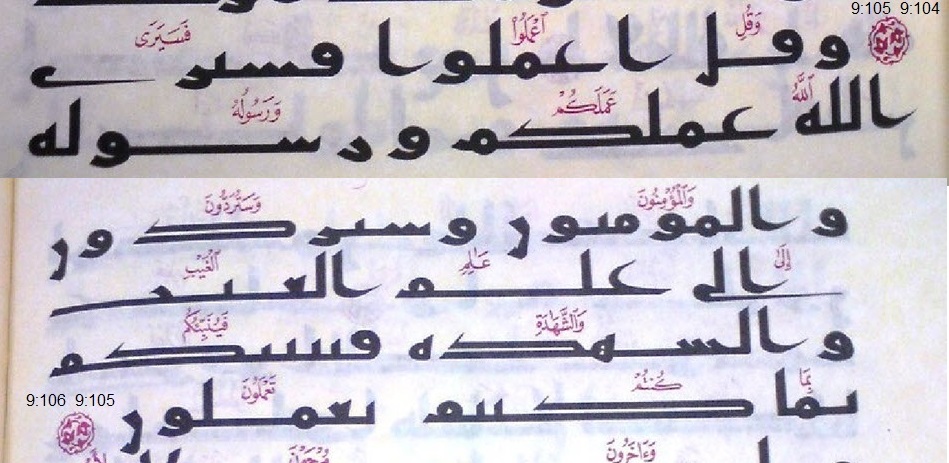 9:105 9:104
وَقُلِ ٱعْمَلُوا۟ فَسَيَرَى
و قل اعملوا فسيرى
ٱللَّهُ عَمَلَكُمْ وَرَسُولُهُ
الله عملكم ورسوله
وَٱلْمُؤْمِنُونَ وَسَتُرَدُّونَ
والمومنون وستردون
إِلَىٰ عَٰلِمِ ٱلْغَيْبِ
الى علم الغيب
وَٱلشَّهَٰدَةِ فَيُنَبِّئُكُم
والشهدة فينبيكم
بِمَا كُنتُمْ تَعْمَلُونَ
بما كنتم تعملون
9:106 9:105
وَءَاخَرُونَ مُرْجَوْنَ